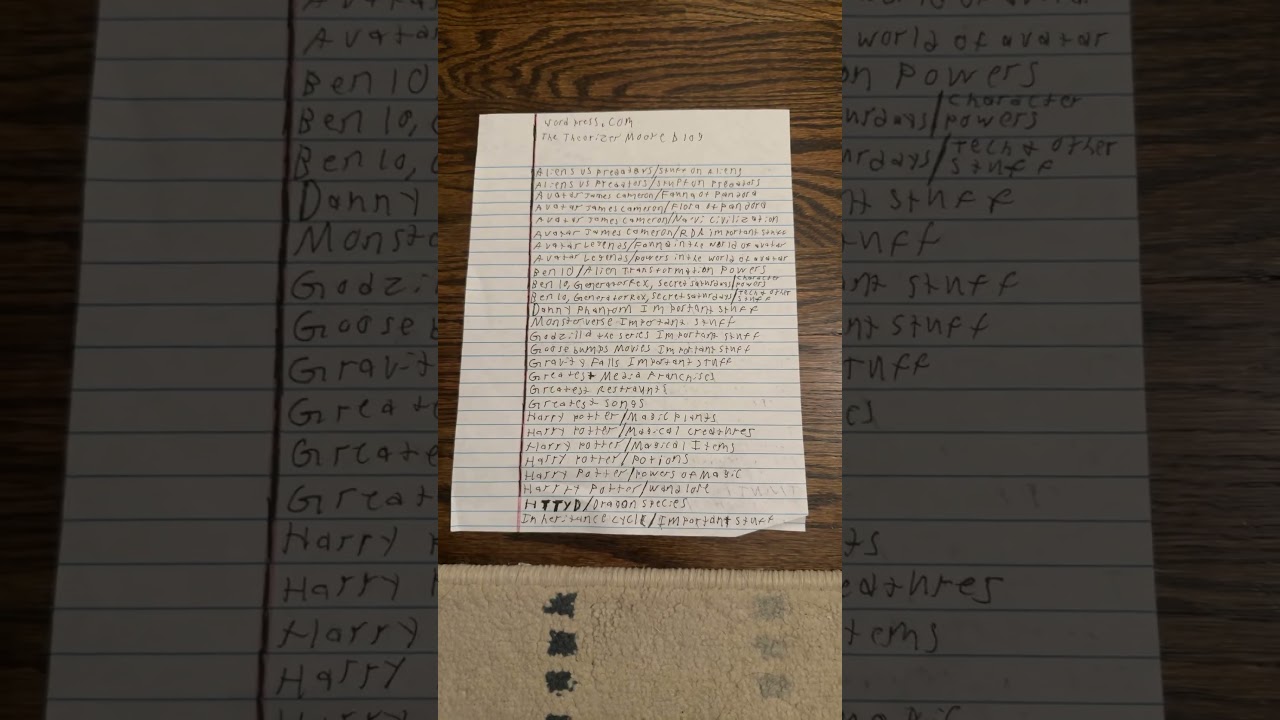 wordpress.com
The Theorizer Moore blog
Aliens vs predators/stuff on Aliens
Aliens vs predators/stuff on predators
Avatar James Cameron/Fauna of Pandora
Avatar James Cameron/Flora of Pandora
Avatar James Cameron/Navi Civilization
Avatar James Cameron/RDA important stuff
Avatar Legends/Fauna in the world of avatar
Avatar Legends/powers in the world of avatar
Ben 10/Alien Transformation Powers
Ben 10, Generator Rex, secret saturdays/character powers
Ben 10, Generator Rex, secret saturdays/Tech & other stuff
Danny Phantom Important stuff
Monsterverse Important stuff
Godzilla the series Important stuff
Goosebumps Movies Important stuff
Gravity Falls Important stuff
Greatest Media Franchises
Greatest Restraunts
Greatest songs
Harry Potter/Magic Plants
Harry Potter/Magical creathres
Harry Potter/Magical Items
Harry Potter/potions
Harry Potter/powers of Magic
Harry Potter/wand lore
HTTYD/Dragon species
Inheritance cycle/Important stuff